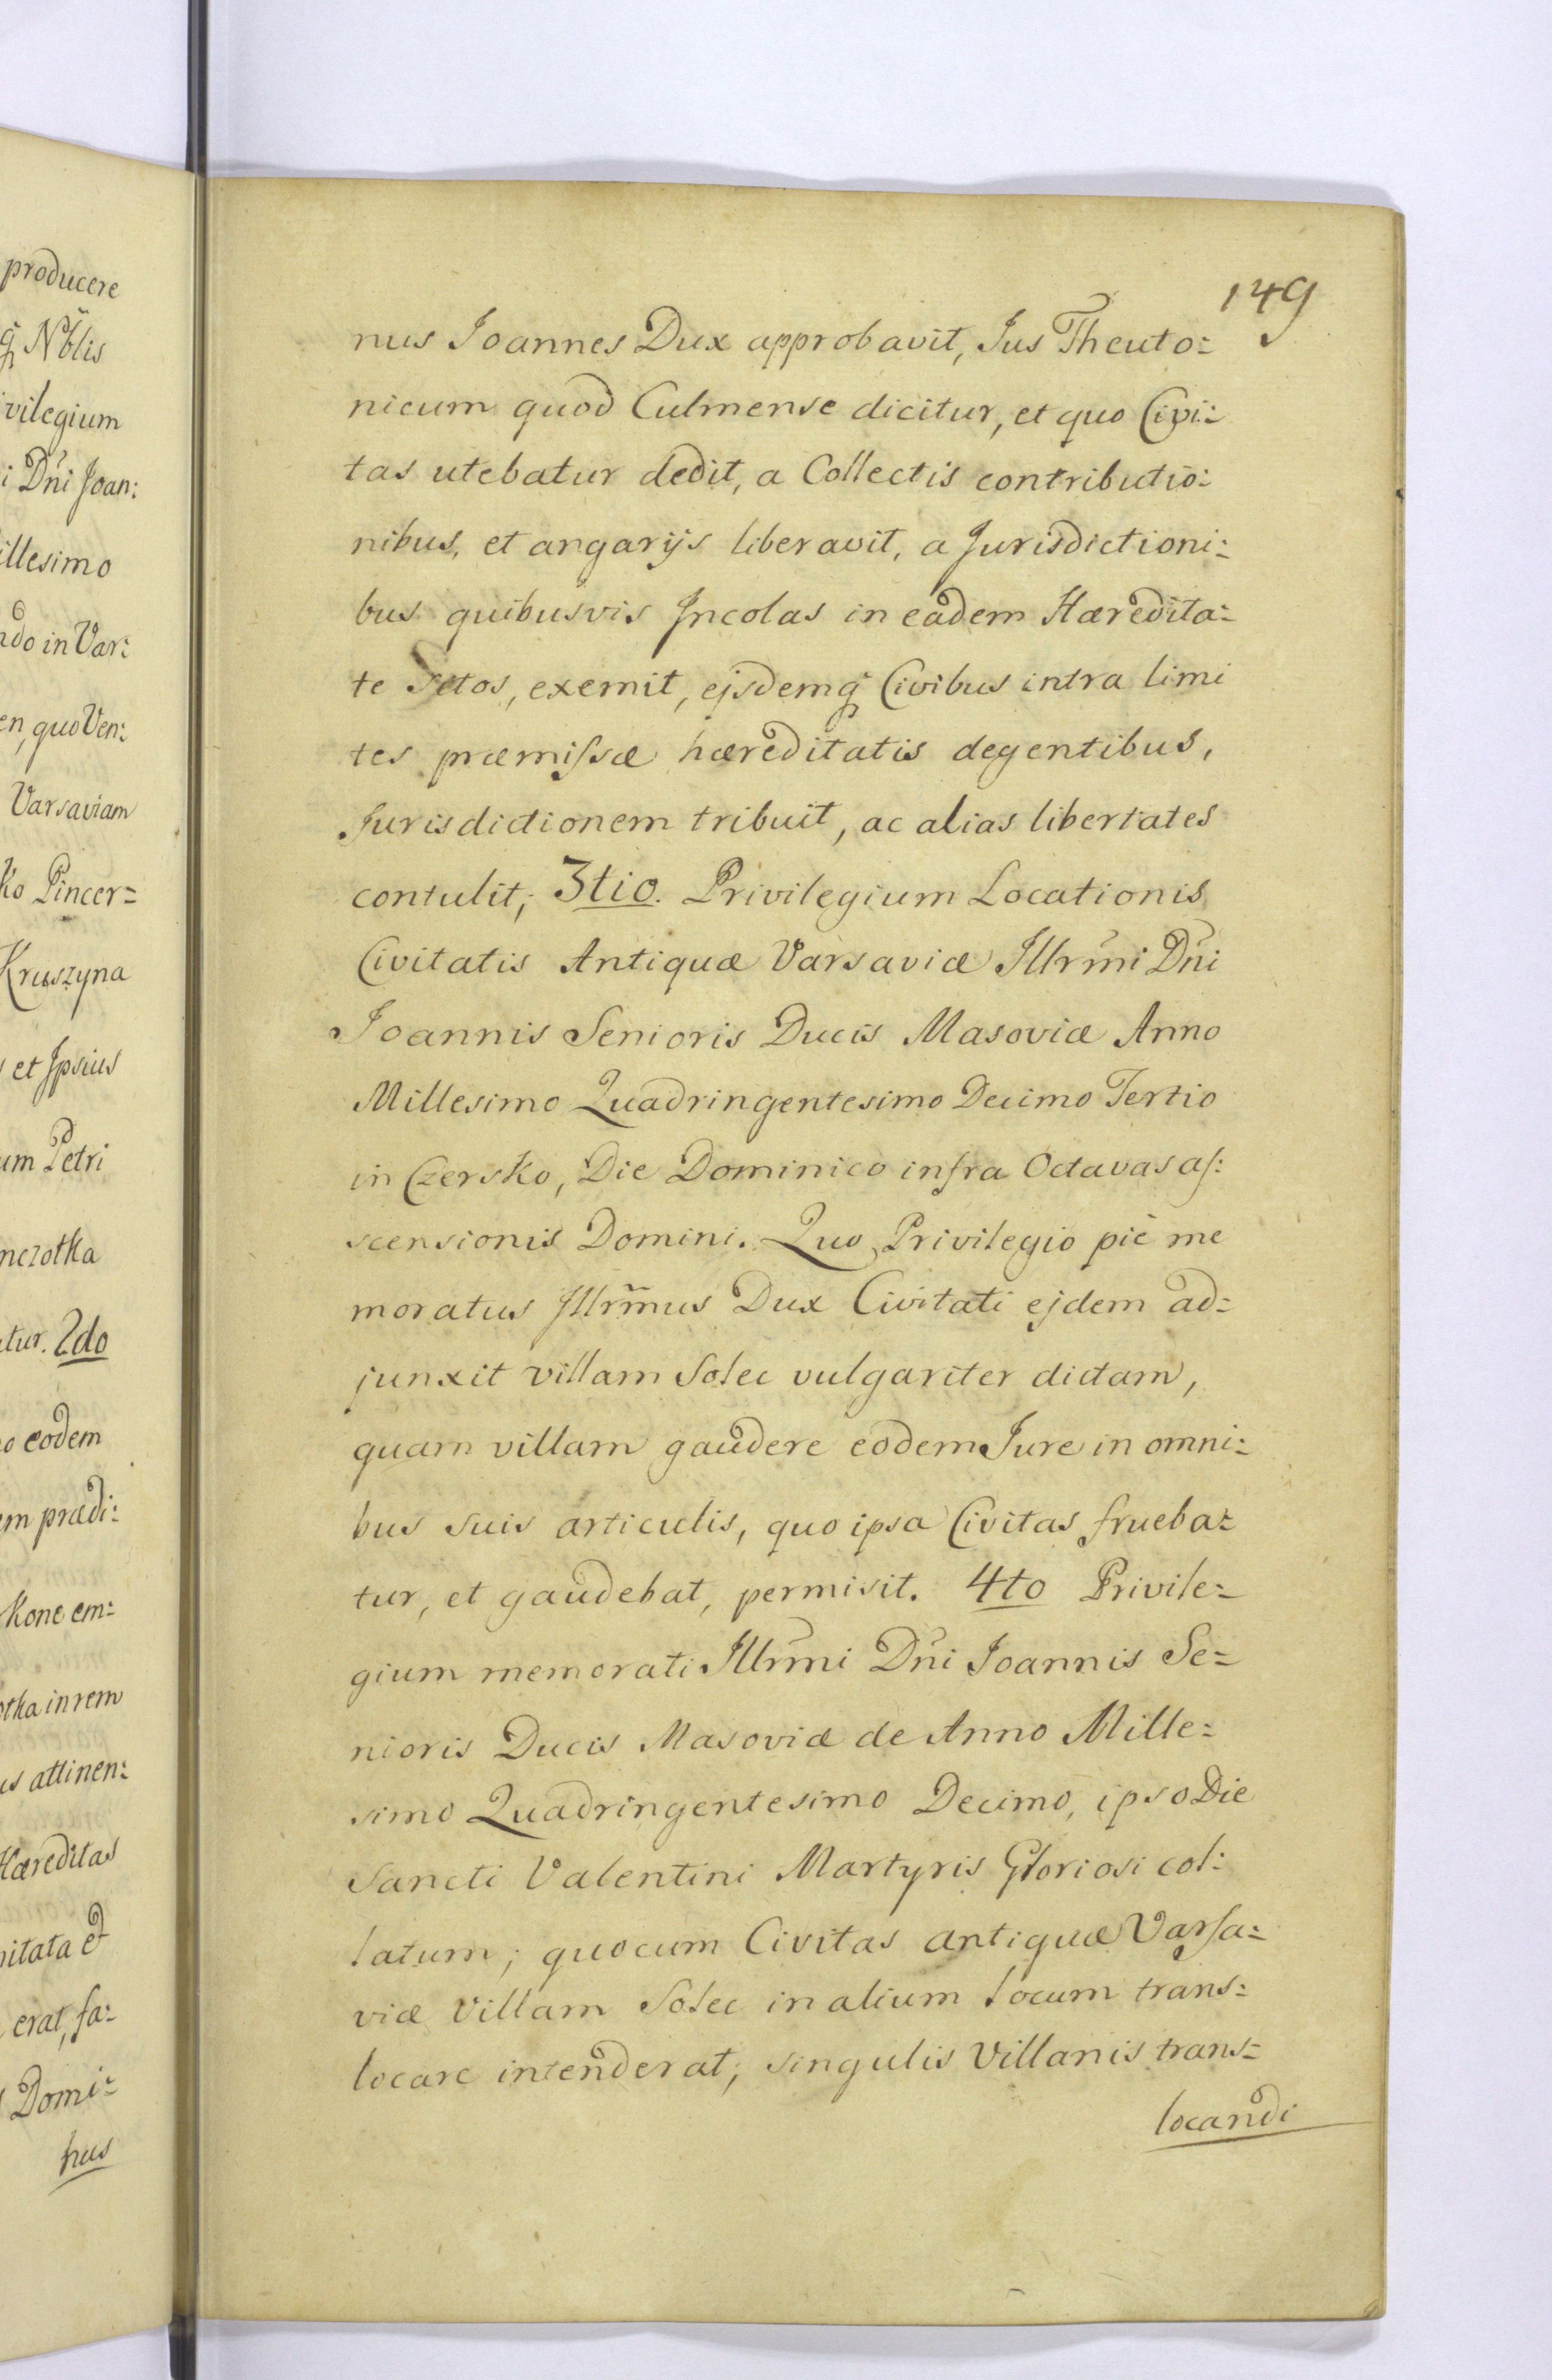 producere
q̃ Nb̃lis
vilegium
i Dñi Joan:
illesimo
ndo in Var:
en, quo Ven:
Varsaviam
ko Pincer=
Kruszyna
et Ipsius
um Petri
nczotka
tur. 2do
o eodem
em prædi:
kone em:
otka in rem
us attinen:
Hæreditas
nitata et
erat, fa:
Domi:
nus
149
nus Joannes Dux approbavit, Jus Theuto:
nicum quod Culmense dicitur, et quo Civi:
tas utebatur dedit, a Collectis contributio:
nibus, et angarijs liberavit, a Jurisdictioni:
bus quibusvis Jncolas in eadem Hæredita:
te Setos, exemit, ejsdemq̃ Civibus intra limi
tes præmissæ hæreditatis degentibus,
Jurisdictionem tribuit, ac alias libertates
contulit; 3tio. Privilegium Locationis
Civitatis Antiquæ Varsaviæ Jllrm̃i Dñi
Joannis Senioris Ducis Masoviæ Anno
Millesimo Quadringentesimo Decimo Tertio
in Czersko, Die Dominico infra Octavas as:
scensionis Domini. Quo Privilegio piè me
moratus Jllrm̃us Dux Civitati ejdem ad:
junxit villam Solec vulgariter dictam,
quam villam gaudere eodem Jure in omni:
bus suis articulis, quo ipsa Civitas frueba:
tur, et gaudebat, permisit. 4to Privile=
gium memorati Jllrm̃i Dñi Joannis Se=
nioris Ducis Masoviæ de Anno Mille:
simo Quadringentesimo Decimo, ipso Die
Sancti Valentini Martyris Gloriosi col:
latum; quocum Civitas antiquæ Varsa=
viæ Villam Solec in alium locum trans:
locare intenderat; singulis Villanis trans=
locandi